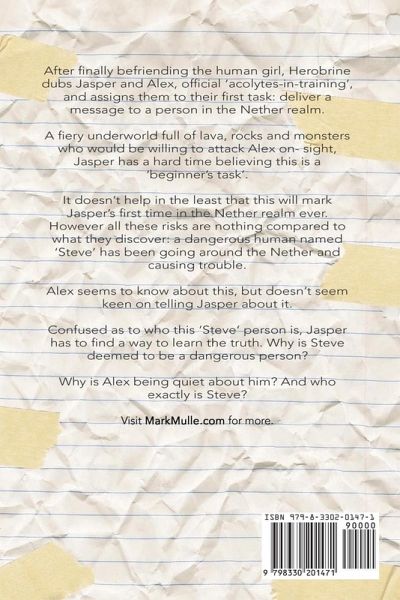 After finally befriending the human girl, Herobrine
dubs Jasper and Alex, official ‘acolytes-in-training’,
and assigns them to their first task: deliver a
message to a person in the Nether realm.
A fiery underworld full of lava, rocks and monsters
who would be willing to attack Alex on- sight,
Jasper has a hard time believing this is a
‘beginner’s task’.
It doesn’t help in the least that this will mark
Jasper’s first time in the Nether realm ever.
However all these risks are nothing compared to
what they discover: a dangerous human named
‘Steve’ has been going around the Nether and
causing trouble.
Alex seems to know about this, but doesn’t seem
keen on telling Jasper about it.
Confused as to who this ‘Steve’ person is, Jasper
has to find a way to learn the truth. Why is Steve
deemed to be a dangerous person?
Why is Alex being quiet about him? And who
exactly is Steve?
Visit MarkMulle.com for more.
ISBN 979-8-3302-0147-1
90000
9 798330 201471